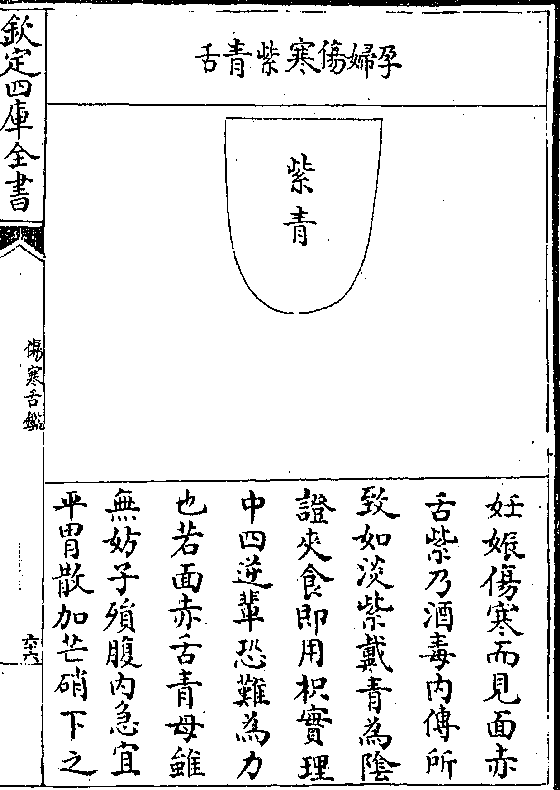 孕婦傷寒紫青舌
紫青
妊娠傷寒而見面赤
舌紫乃酒毒內傳所
致如淡紫戴青為陰
證夾食即用枳實理
中四逆輩恐難為力
也若面赤舌青母雖
無妨子殞腹內急宜
平胃散加芒硝下之
欽定四庫全書
傷寒舌鑑
六十六